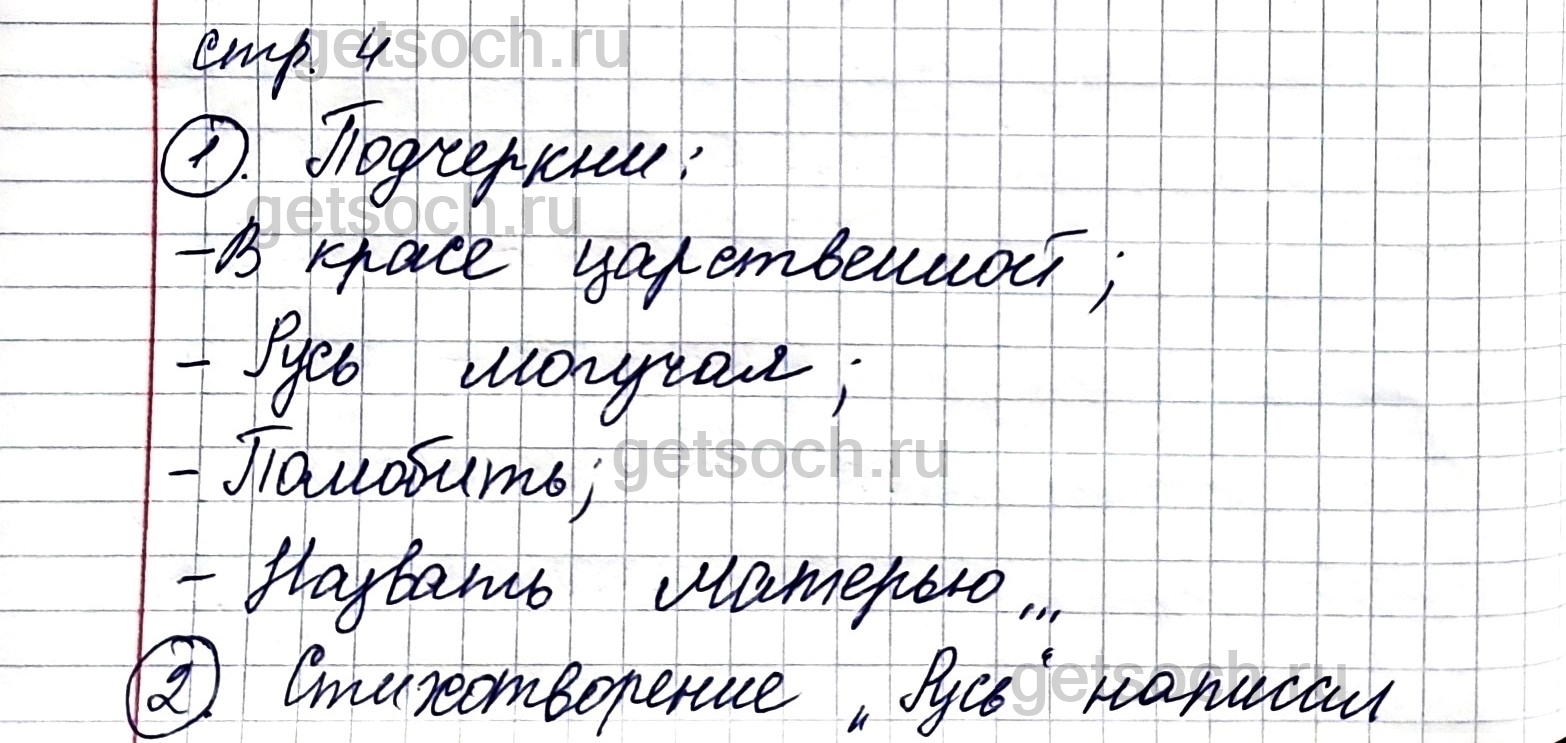 стр. 4
getsoch.ru
1. Подчеркни:
getsoch.ru
- В красе царственной;
- Русь могучая;
- Полюбить;
getsoch.ru
- Назвать матерью...
2. Стихотворение „Русь“ написал
getsoch.ru